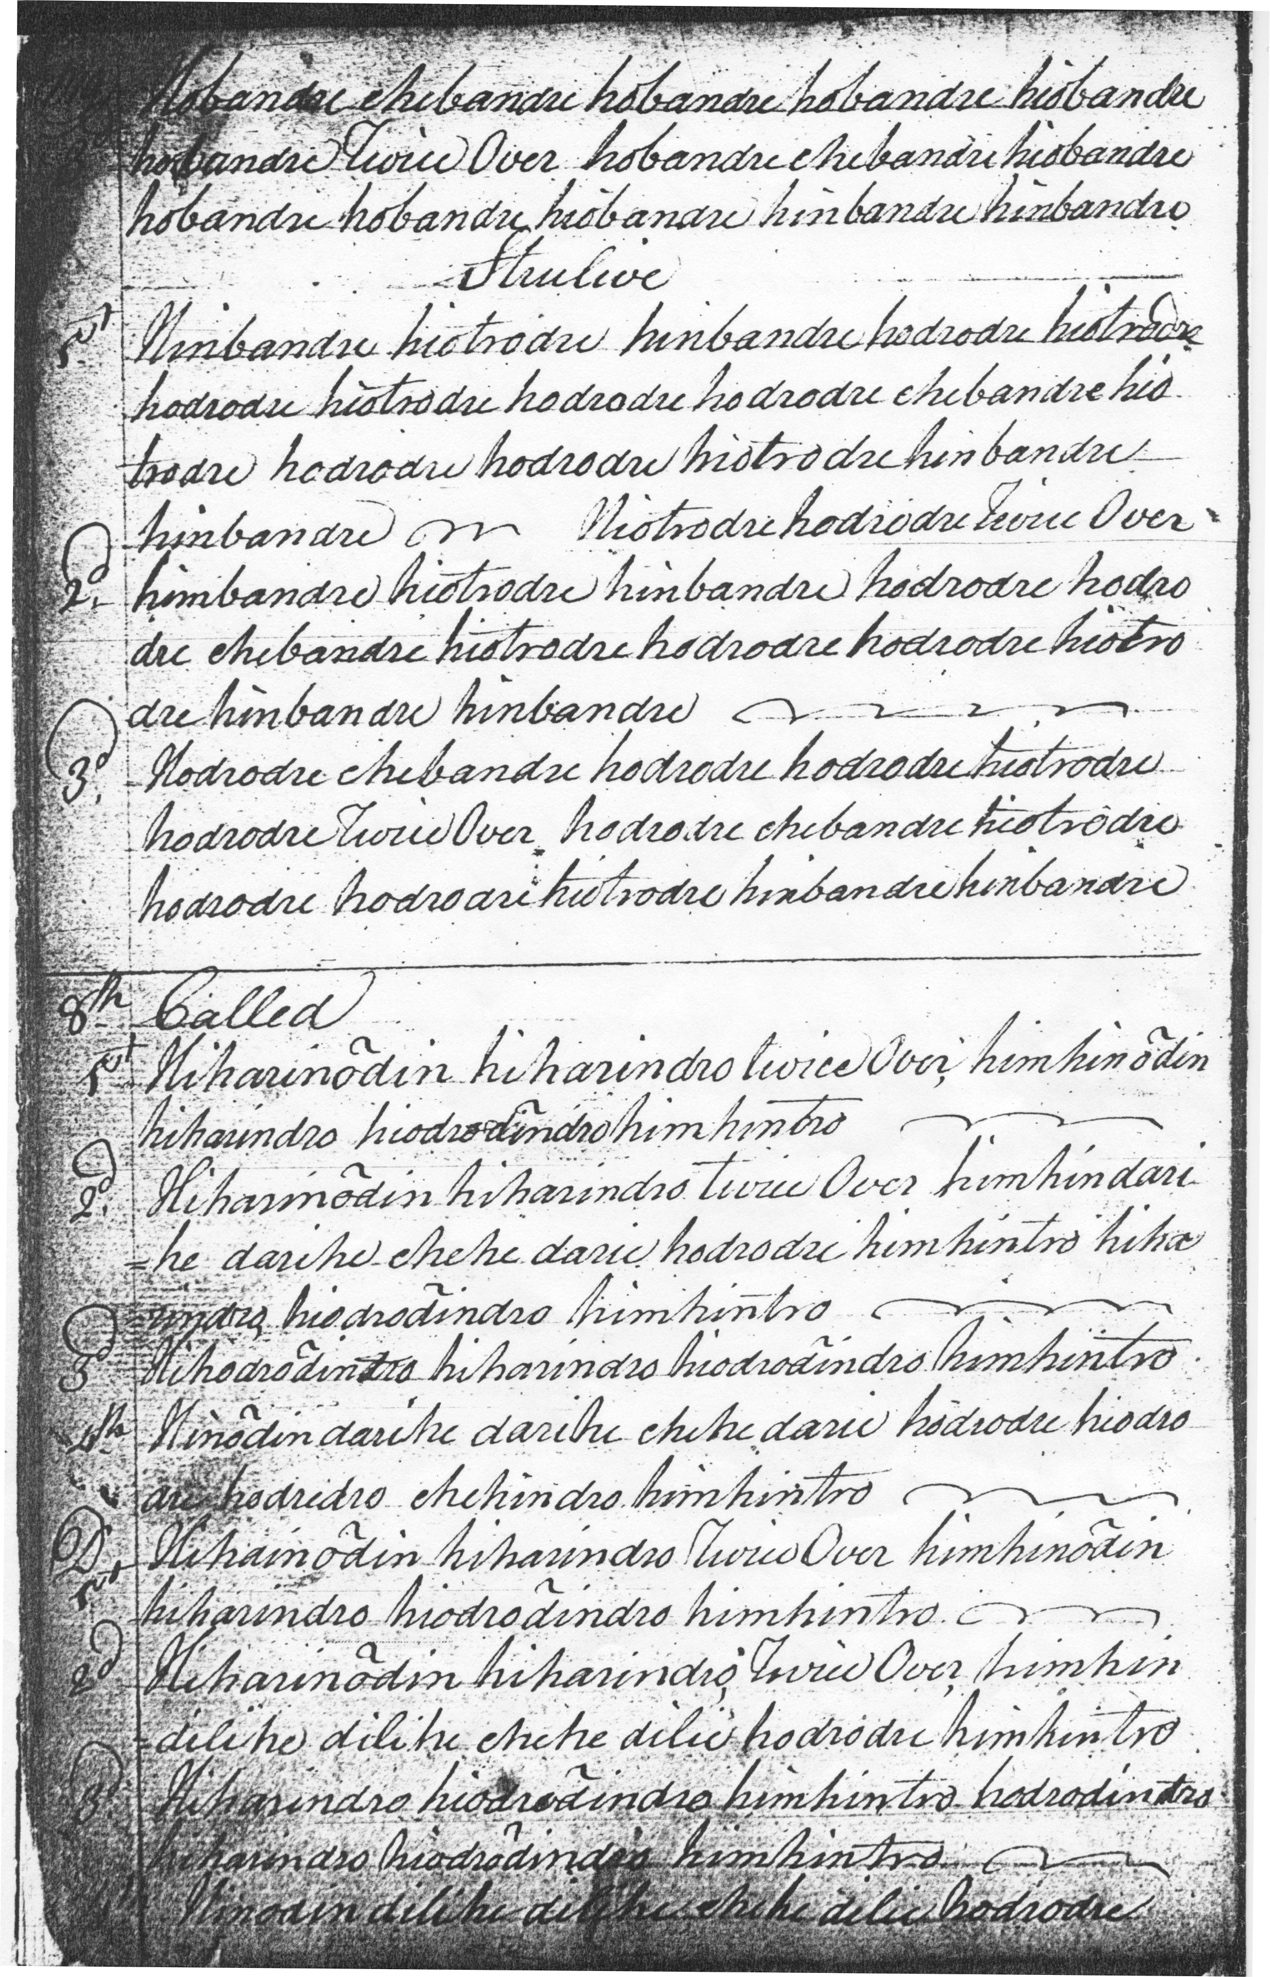 Hobandre chebandre hobandre hobandre hiobandre
3d hobandre Twice Over hobandre chebandre hiobandre
hobandre hobandre hiobandre hinbandre hinbandre
Strulive
1st Hinbandre hiotrodre hinbandre hodrodre hiotrodre
hodrodre hiotrodre hodrodre hodrodre chebandre hio
trodre hodrodre hodrodre hiotrodre hinbandre
hinbandre Hiotrodre hodrodre Twice Over
2d himbandre hiotrodre hinbandre hodrodre hodro
dre chebandre hiotrodre hodrodre hodrodre hiotro
dre hinbandre hinbandre
3d Hodrodre chebandre hodrodre hodrodre hiotrodre
hodrodre Twice Over hodrodre chebandre hiotrodre
hodrodre hodrodre hiotrodre hinbandre hinbandre
8th Called
1st Hiharinõdin hiharindro twice Over, himhinõdin
hiharindro hiodrodĩndro himhintro
2d Hiharinõdin hiharindro Twice Over himhindari
=he darihe chehe darie hodrodre himhintro hiha
rindro hiodrodĩndro himhintro
3d Hihodrõdintro hiharindro hiodrodĩndro himhintro
4th Hinõdin darihe darihe chehe darie hodrodre hiodro
dre hodredro chehindro himhintro
D. 1st Hihainõdin hiharindro Twice Over himhinõdin
hiharindro hiodrodĩndro himhintro
2d Hiharinõdin hiharindro, Twice Over, himhin
=dilihe dilihe chehe dilie hodrodre himhintro
3d Hiharindro hiodrodĩndro himhintro hodrodintro
hiharindro hiodrõdindro himhintro
Hinodin dilihe dilihe chehe dilie hodrodre